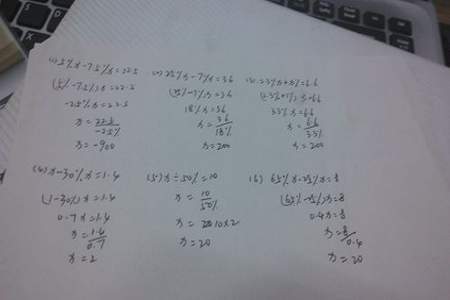 (1) 5%x-7.5%x=22.5
(5%-7.5%)x=22.5
-2.5%x=22.5
x=22.5/-2.5%
x=-900
25%x-7%x=36
(25%-7%)x=36
18%x=36
x=36/18%
x=200
33%x=6.6
x=6.6/3.3%
x=200
(4) x-30%x=1.4
(1-30%)x=1.4
0.7x=1.4
x=1.4/0.7
x=2
(5) x÷50%=10
x=10/50%
x=10×2
x=20
(6) 65%x-25%x=8
(65%-25%)x=8
0.4x=8
x=8/0.4
x=20